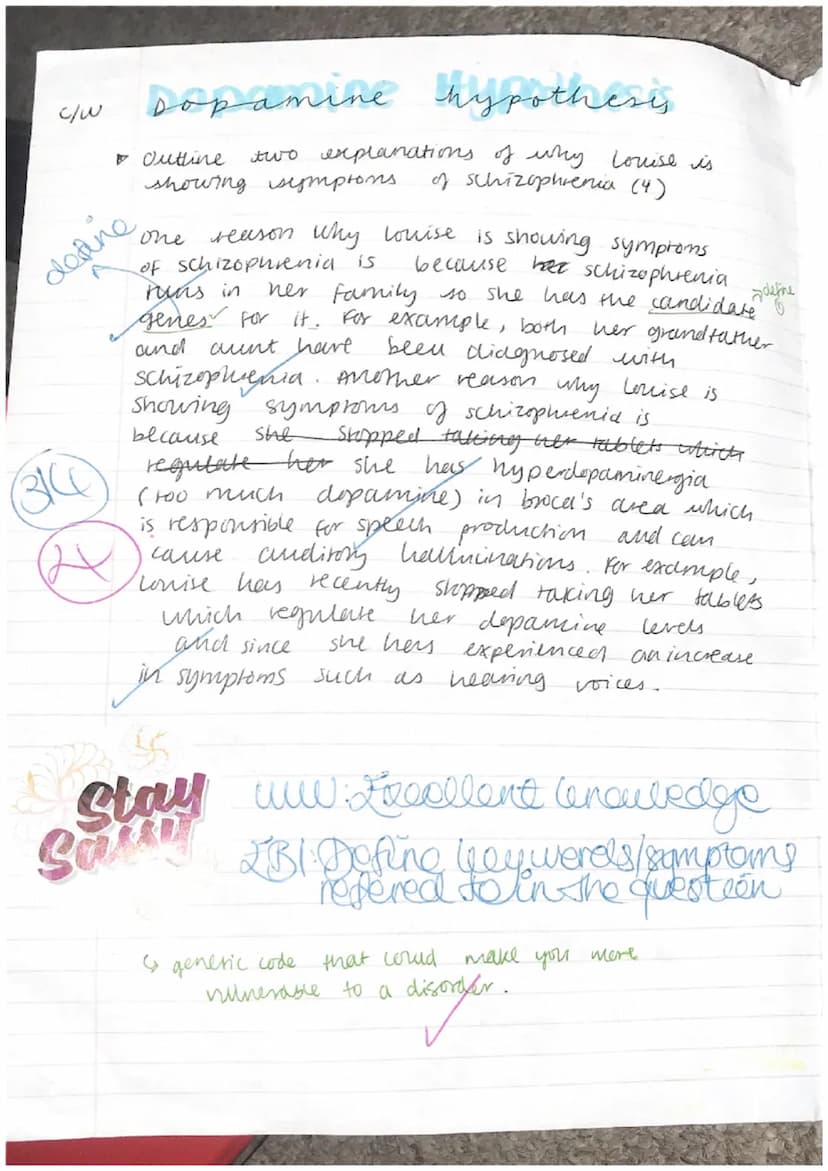 c/w Dopamine hypothesis
Dopamine Hypothesis
Outline two explanations of why Louise is
showing symptoms of schizophrenia (4)
define
One reason why Louise is showing symptoms
of schizophrenia is because her schizophrenia
runs in her family so she has the candidate
define
genes for it. For example, both her grandfather
and aunt have been diagnosed with
schizophrenia. Another reason why Louise is
showing symptoms of schizophrenia is
because she stopped taking her tablets which
regulate her she has hyperdopaminergia
3/4
(too much dopamine) in broca's area which
is responsible for speech production and can
4
cause auditory hallucinations. For example,
Louise has recently stopped taking her tablets
which regulate her dopamine levels
and since she has experienced an increase
in symptoms such as hearing voices.
Stay
Sassy
WWW: Excellent knowledge
EBI: Define keywords/symptoms
refered to in the question
↳ genetic code that could make you more
vulnerable to a disorder.